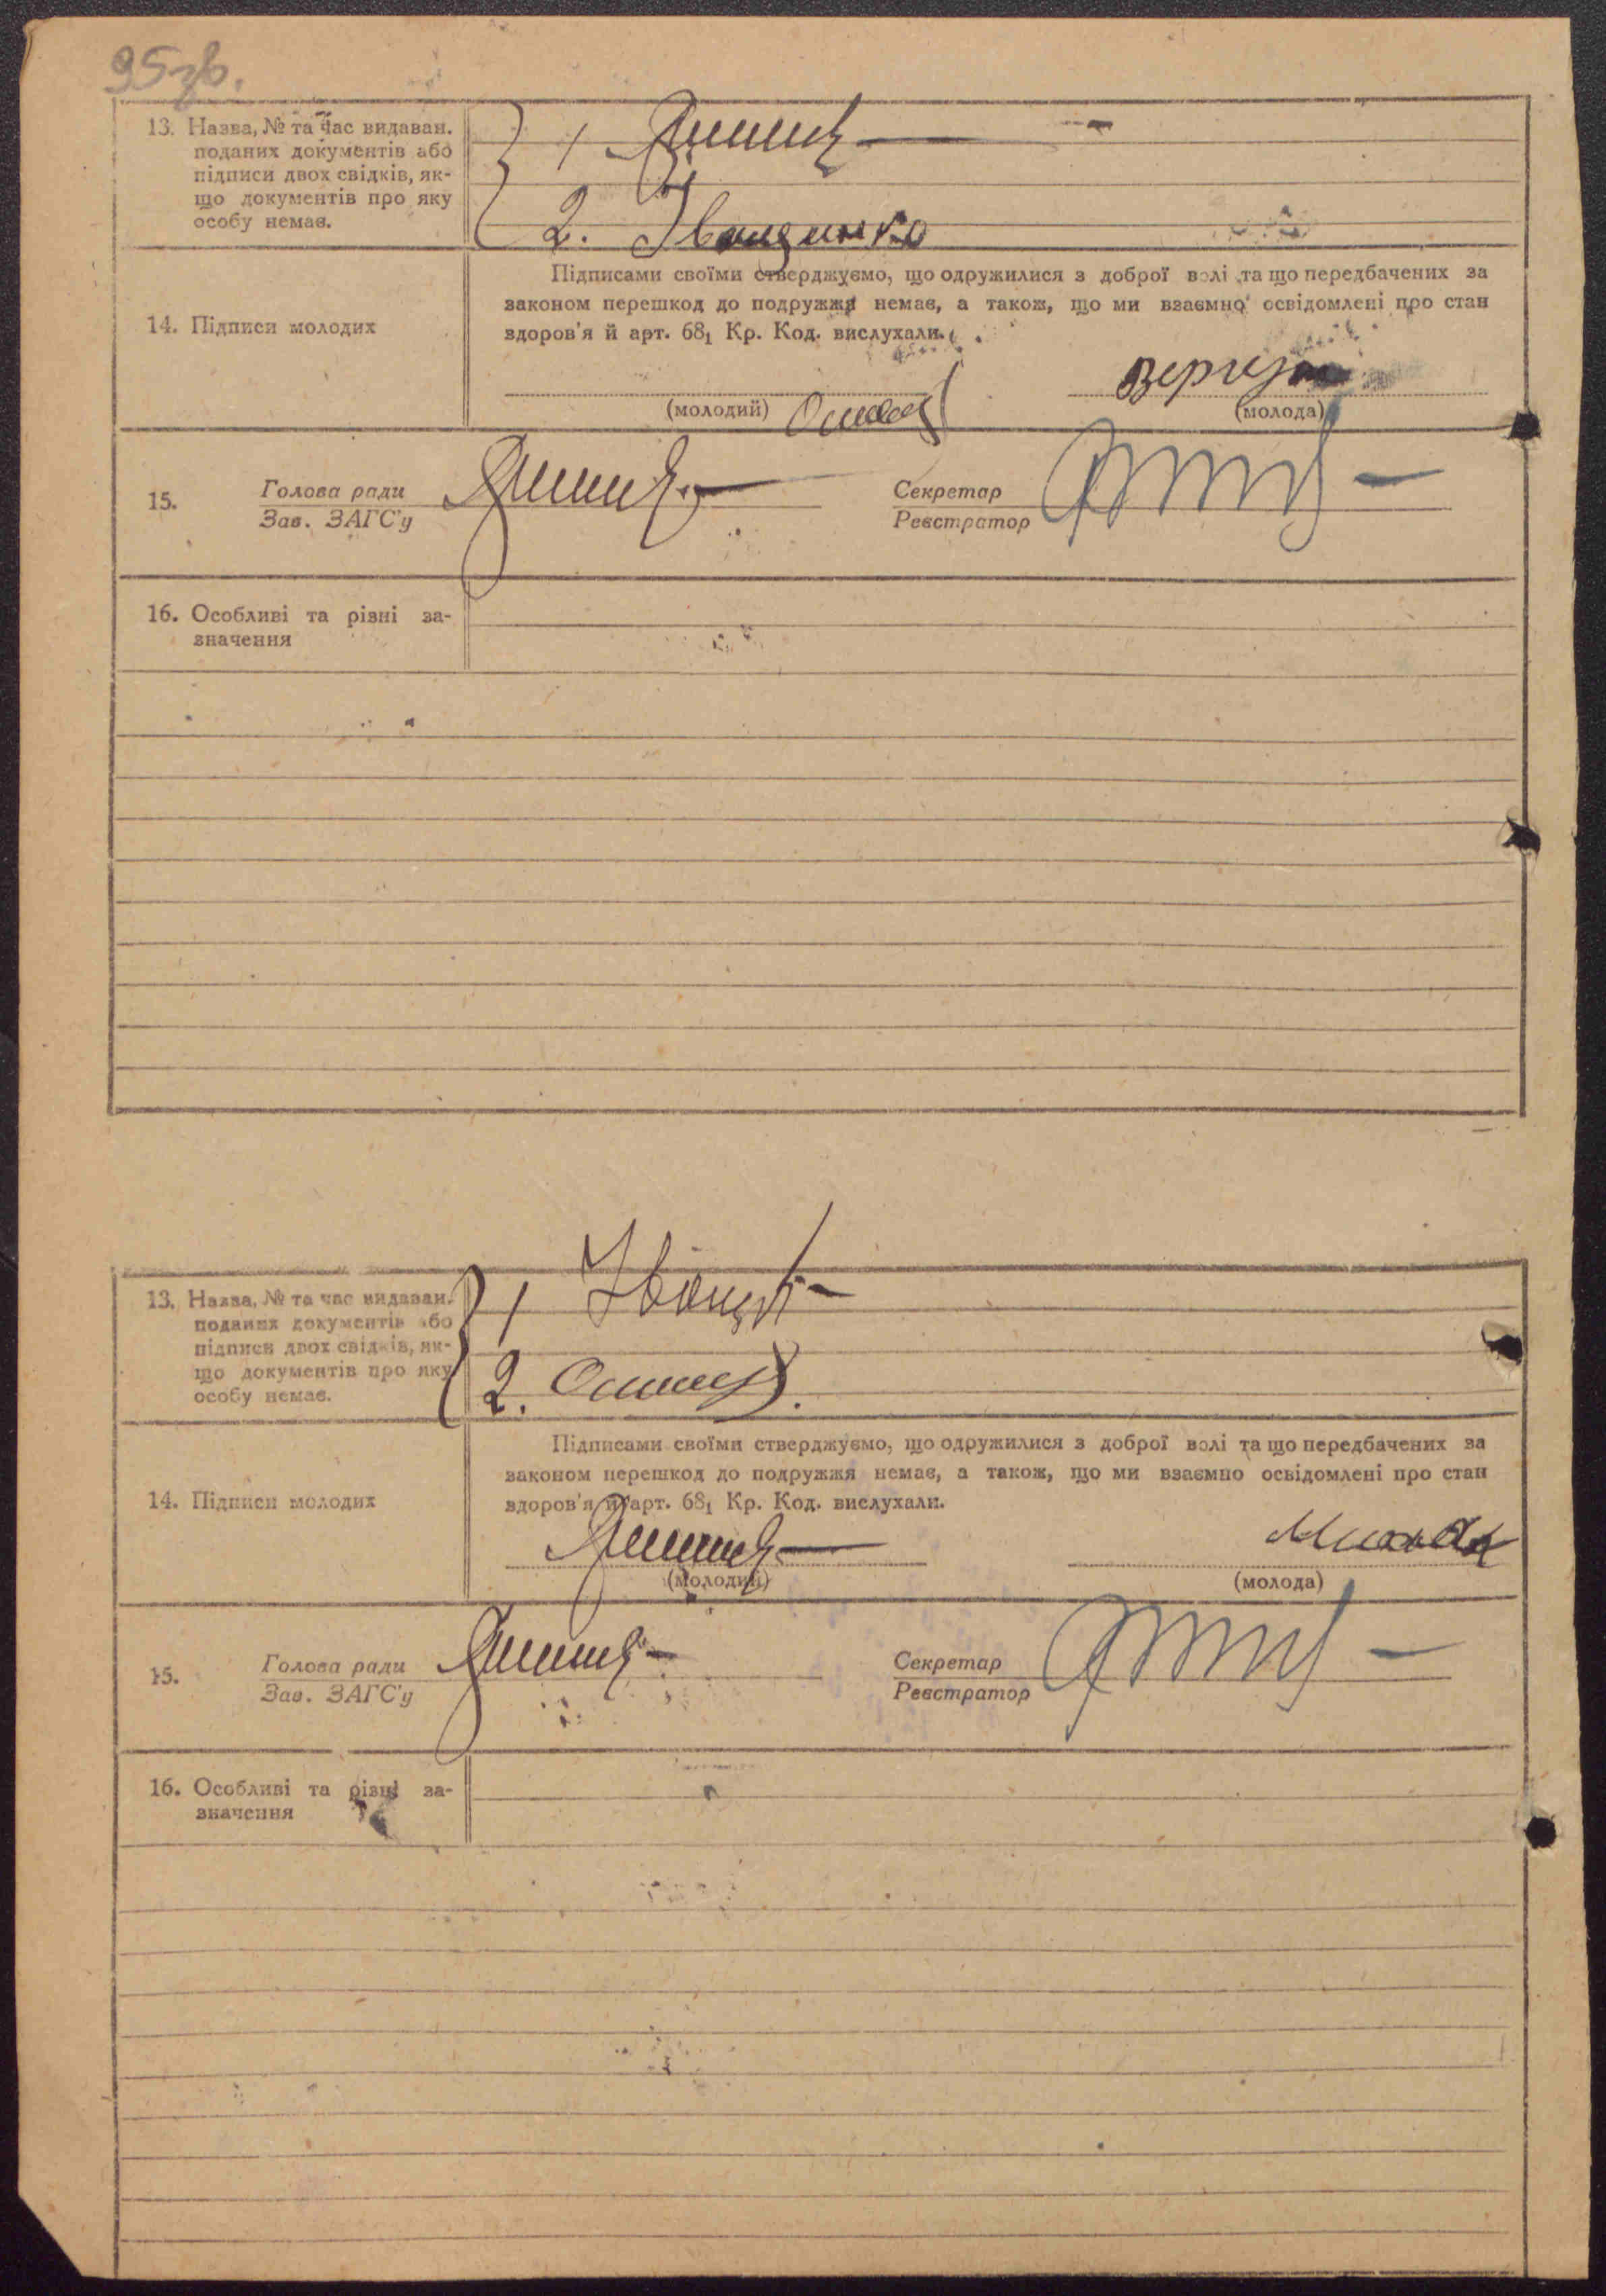 95зв.
13. Назва, № та час видаван.
поданих документів або
підписи двох свідків, як-
що документів про яку
особу немає.
1
2. Іващинко
14. Підписи молодих
Підписами своїми стверджуємо, що одружилися з доброї волі та що передбачених за
законом перешкод до подружжя немає, а також, що ми взаємно освідомлені про стан
здоров'я й арт. 68₁ Кр. Код. вислухали.
(молодий)
(молода)
15.
Голова ради
Зав. ЗАГС'у
Секретар
Реєстратор
16. Особливі та різні за-
значення
13. Назва, № та час видаван.
поданих документів або
підписи двох свідків, як-
що документів про яку
особу немає.
1
2.
14. Підписи молодих
Підписами своїми стверджуємо, що одружилися з доброї волі та що передбачених за
законом перешкод до подружжя немає, а також, що ми взаємно освідомлені про стан
здоров'я й арт. 68₁ Кр. Код. вислухали.
(молодий)
(молода)
15.
Голова ради
Зав. ЗАГС'у
Секретар
Реєстратор
16. Особливі та різні за-
значення